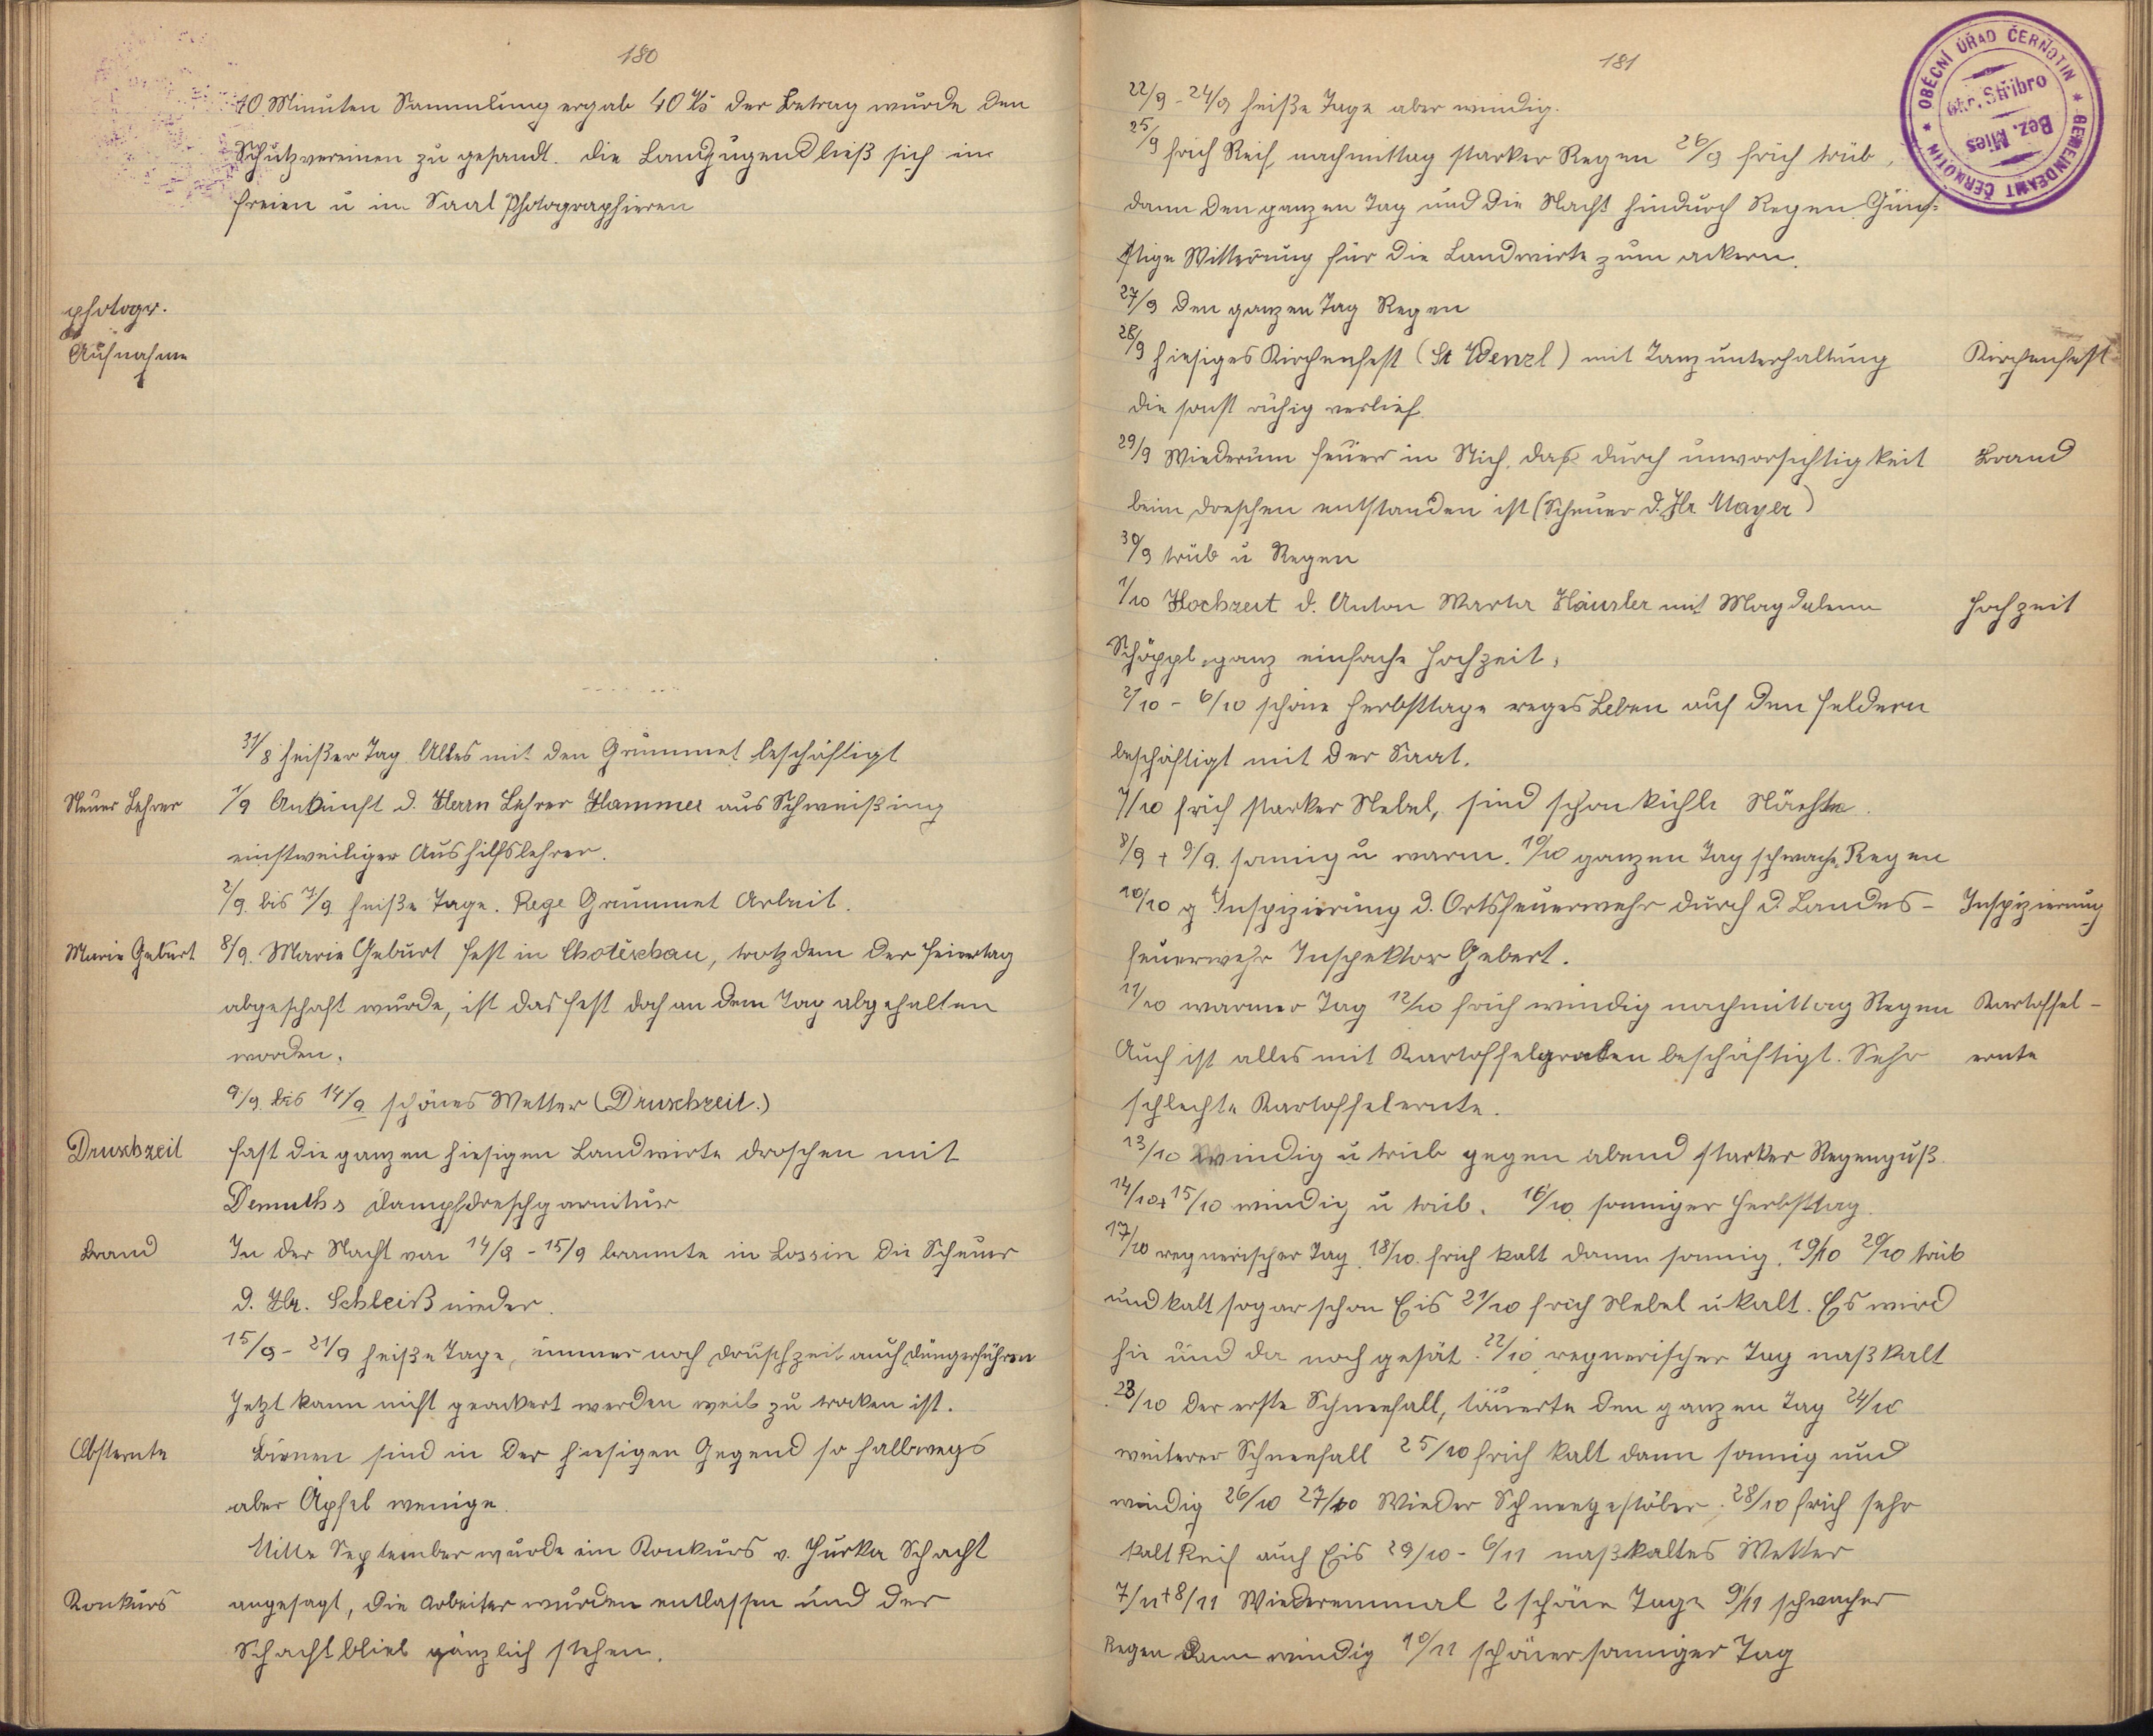 180
10 Minuten Sammlung ergab 40 Kčs der Betrag wurde den
Schutzvereinen zu gesandt. Die Landjugend ließ sich im
freien u im Saal Photographieren
photogr.
Aufnahme
31/8 heißer Tag Alles mit den Grummet beschäftigt
Neuer Lehrer
1/9 Ankunft d. Herrn Lehrer Hammer aus Schweißing
einstweiliger Aushilfslehrer.
2/9. bis 7/9 heiße Tage. Rege Grummet Arbeit.
Marie Geburt
8/9. Marie Geburt Fest in Chotěschau, trotzdem der Feiertag
abgeschaft wurde, ist das Fest doch an dem Tag abgehalten
worden.
9/9. bis 14/9 schönes Wetter (Druschzeit.)
Druschzeit
Fast die ganzen hiesigen Landwirte droschen mit
Demuths Dampfdreschgarnitur
Brand
In der Nacht von 14/9 - 15/9 brannte in Lossin die Scheuer
d. Hr. Schleiß nieder.
15/9 - 21/9 heiße Tage, immer noch Druschzeit auch Düngerführen
Jetzt kann nicht geackert werden weils zu troken ist.
Obsternte
Birnen sind in der hiesigen Gegend so halbwegs
aber Äpfel wenige.
Mitte September wurde ein Konkurs v. Jurka Schacht
Konkurs
angesagt, die Arbeiter wurden entlassen und der
Schacht blieb gänzlich stehen.
181
OBECNÍ ÚŘAD ČERŇOTIN * GEMEINDEAMT ČERNOTIN *
okr. Stříbro
Bez. Mies
22/9 - 24/9 heiße Tage aber windig.
25/9 früh Reif, nachmittag starker Regen 26/9 früh trüb,
dann den ganzen Tag und die Nacht hindurch Regen. Güns-
stige Witterung für die Landwirte zum ackern.
27/9 den ganzen Tag Regen
28/9 hiesiges Kirchenfest (St Wenzl) mit Tanzunterhaltung
Kirchenfest
die sonst ruhig verlief.
29/9 Wiederum Feuer in Stich, das durch unvorsichtigkeit
Brand
beim dreschen entstanden ist (Scheuer d. Hr Mayer)
30/9 trüb u Regen
1/10 Hochzeit d. Anton Warta Häusler mit Magdalena
Hochzeit
Schöppl. ganz einfache Hochzeit.
2/10 - 6/10 schöne Herbsttage reges Leben auf den Feldern
beschäftigt mit der Saat.
7/10 früh starker Nebel, sind schon kühle Nächte.
8/9 + 9/9. sonnig u warm. 10/10 ganzen Tag schwache Regen
10/10 g Inspizierung d. Ortsfeuerwehr durch d. Landes-
Inspizierung
feuerwehr Inspektor Gebert.
11/10 warmer Tag 12/10 früh windig nachmittag Regen
Kartoffel-
Auch ist alles mit Kartoffelgraben beschäftigt. Sehr
ernte
schlechte Kartoffelernte.
13/10 windig u trüb gegen abend starker Regenguß.
14/10 + 15/10 windig u trüb. 16/10 sonniger Herbsttag.
17/10 regnerischer Tag. 18/10. früh kalt dann sonnig. 19/10 20/10 trüb
und kalt sogar schon Eis 21/10 früh Nebel u kalt. Es wird
hie und da noch gesät. 22/10 regnerischer Tag naßkalt
23/10 der erste Schneefall, däuerte den ganzen Tag 24/10
weiterer Schneefall 25/10 früh kalt dann sonnig und
windig 26/10 27/10 Wieder Schneegestöber. 28/10 früh sehr
kalt Reif auch Eis 29/10 - 6/11 naßkaltes Wetter
7/11 + 8/11 Wiedereinmal 2 schöne Tage 9/11 schwacher
Regen dann windig 10/11 schöner sonniger Tag